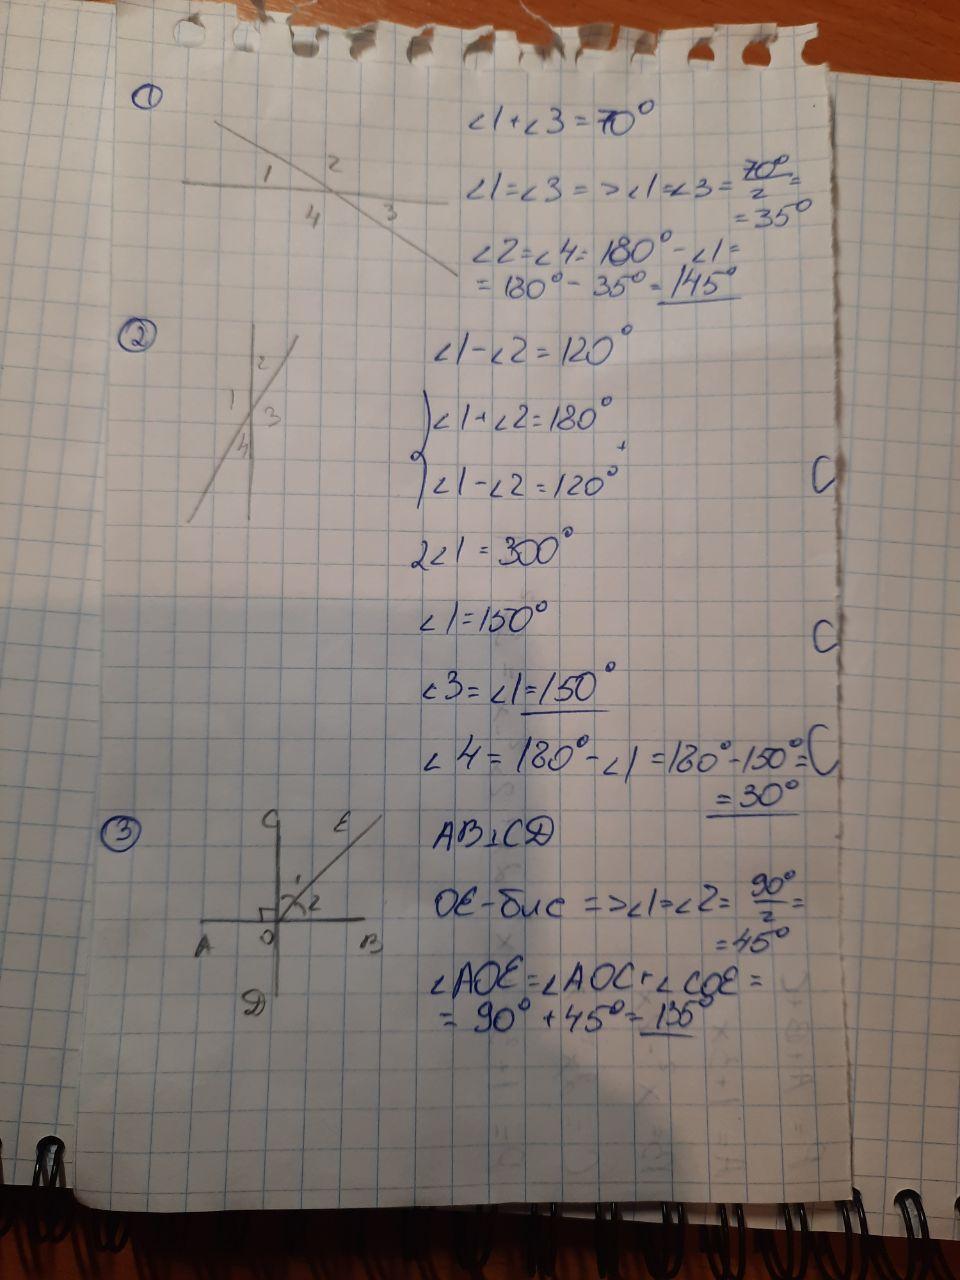 1
1 2
4 3
∠1+∠3=70°
∠1=∠3=>∠1=∠3=70°/2=
=35°
∠2=∠4=180°-∠1=
=180°-35°=145°
2
2
1
3
4
∠1-∠2=120°
∠1+∠2=180°
∠1-∠2=120° +
2∠1=300°
∠1=150°
∠3=∠1=150°
∠4=180°-∠1=180°-150°=
=30°
3
C E
1 2
A O B
D
AB⊥CD
OE-бис=>∠1=∠2=90°/2=
=45°
∠AOE=∠AOC+∠COE=
=90°+45°=135°
C
C
C